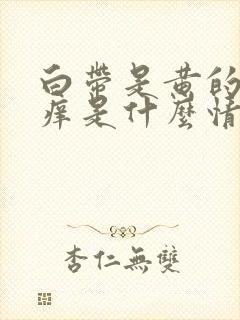 白带是黄的
痒是什麼情
杏仁無雙